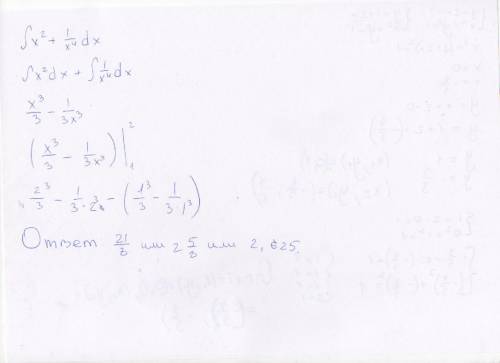 ∫x² + 1/x⁴ dx
∫x² dx + ∫1/x⁴ dx
x³/3 - 1/3x³
(x³/3 - 1/3x³) |₁²
2³/3 - 1/3·2³ - (1³/3 - 1/3·1³)
Ответ 21/8 или 2 5/8 или 2,625.